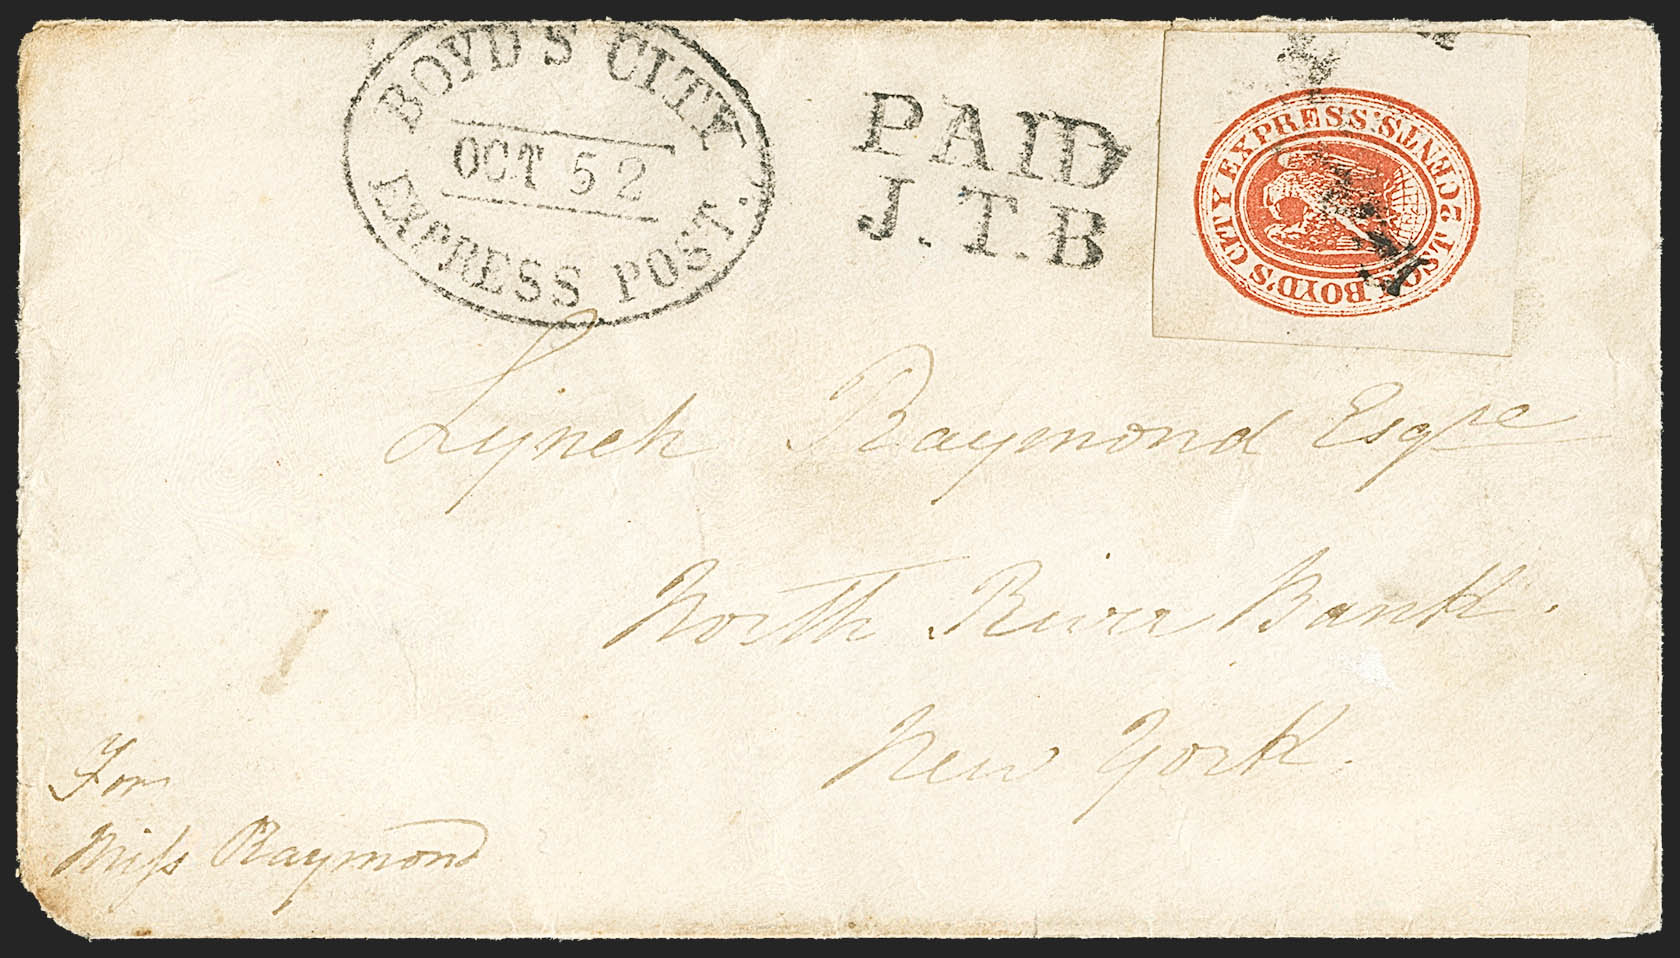 BOYD'S CITY
OCT 5 2
EXPRESS POST.
PAID
J.T.B
BOYD'S CITY EXPRESS POST
2 CENTS
Lynch Raymond Esqre
North River Bank.
New York.
For
Miss Raymond